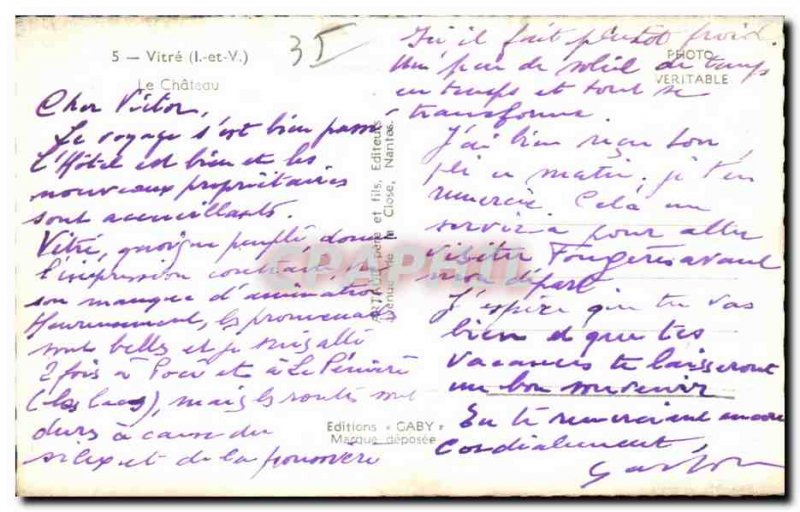 5 — Vitré (I.-et-V.)
Le Château
35
PHOTO
VERITABLE
Cher Victor,
Le voyage s'est bien passé,
L'Hôtel est bien et les
nouveaux propriétaires
sont accueillants.
Vitré, quoique peuplé donne
l'impression contraire,
son manque d'animation
Heureusement, les promenades
sont bells et je suis allé
2 fois à Pocé et à La
(les lacs), mais les routes sont
durs à cause du
silex et de la poussière
Ici il fait plutôt froid.
Un peu de soleil de temps
en temps et tout se
transforme.
J'ai bien reçu ton
pli ce matin, je t'en
remercie. Cela me
servira pour aller
visiter Fougères avant
mon départ.
J'espère que tu vas
bien et que tes
vacances te laisseront
un bon souvenir
En te remerciant encore
Cordialement,
Gaston
ARTAUD père et fils, Editeurs
Avenue de la Close, Nantes
Editions « GABY »
Marque déposée
CPAPHIL